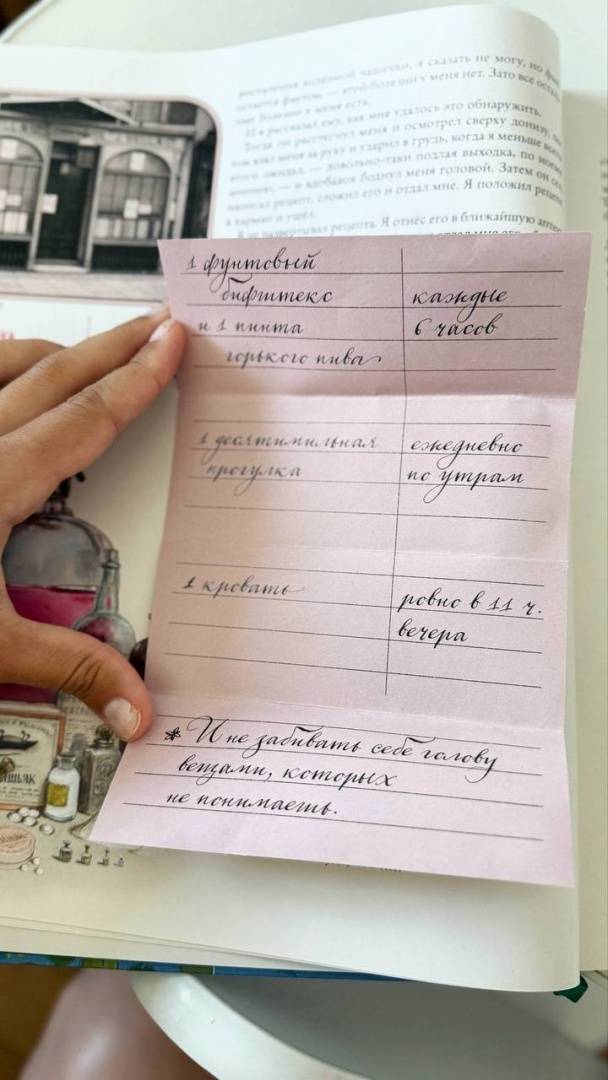 воспаления коленной чашечки, я сказать не могу, но факт
остаётся фактом, — этой болезни у меня нет. Зато все осталь-
ные болезни у меня есть.
И я рассказал ему, как мне удалось это обнаружить.
Тогда он расстегнул меня и осмотрел сверху донизу,
взял меня за руку и ударил в грудь, когда я меньше всего
этого ожидал, — довольно-таки подлая выходка, по моему
мнению, — и вдобавок боднул меня головой. Затем он сел,
написал рецепт, сложил его и отдал мне. Я положил рецепт
в карман и ушёл.
Я не развёртывал рецепта. Я отнёс его в ближайшую
1 фунтовый
бифштекс
и 1 пинта
горького пива
каждые
6 часов
1 десятимильная
прогулка
ежедневно
по утрам
1 кровать
ровно в 11 ч.
вечера
* И не забивать себе голову
вещами, которых
не понимаешь.